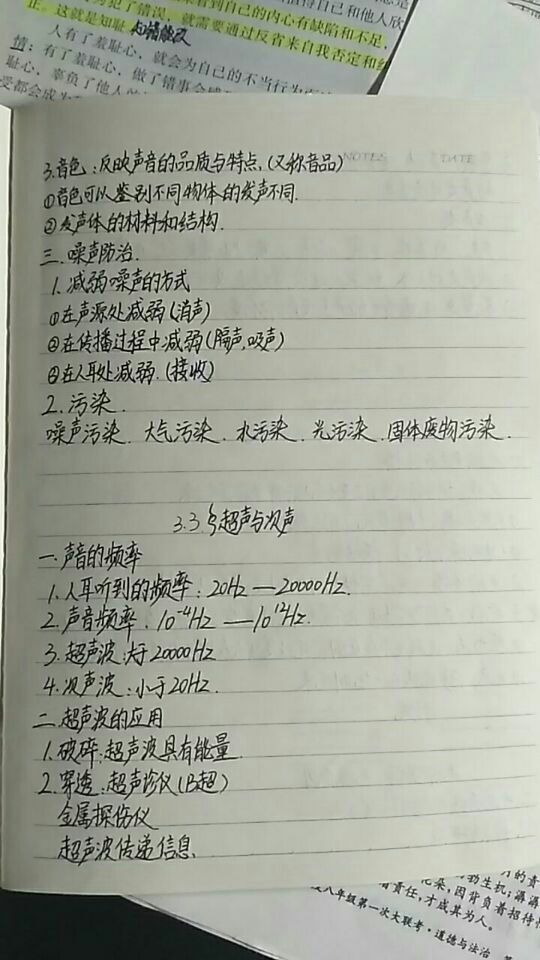 正。这就是知耻 知错能改
人有了羞耻心，就会为自己的不当行为
3.音色：反映声音的品质与特点.(又称音品)
NOTES DATE
①音色可以鉴别不同物体的发声不同.
②发声体的材料和结构.
三.噪声防治.
1.减弱噪声的方式
①在声源处减弱(消声)
②在传播过程中减弱(隔声,吸声)
③在人耳处减弱.(接收)
2.污染.
噪声污染、大气污染、水污染、光污染、固体废物污染.
3.3 超声与次声
一.声音的频率
1.人耳听到的频率：20Hz—20000Hz.
2.声音频率：10⁻⁴Hz—10¹²Hz.
3.超声波：大于20000Hz
4.次声波：小于20Hz.
二.超声波的应用
1.破碎：超声波具有能量.
2.穿透：超声诊仪(B超)
金属探伤仪
超声波传递信息.
花朵，因背负着招待
责任，才成其为人。
八年级第一次大联考·道德与法治